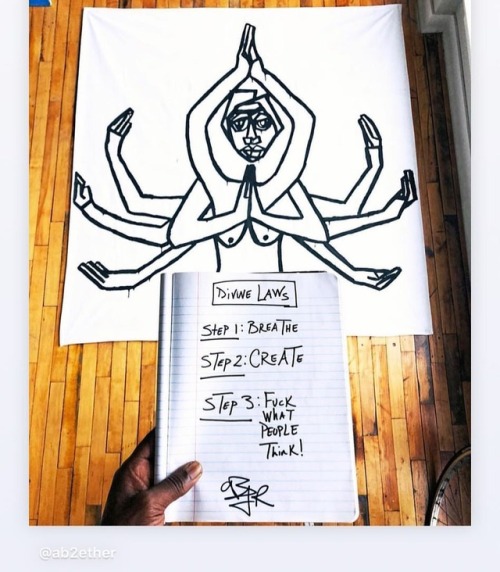 DIVINE LAWS
STEP 1: BREATHE
STEP 2: CREATE
STEP 3: FUCK
WHAT
PEOPLE
THINK!
@ab2ether